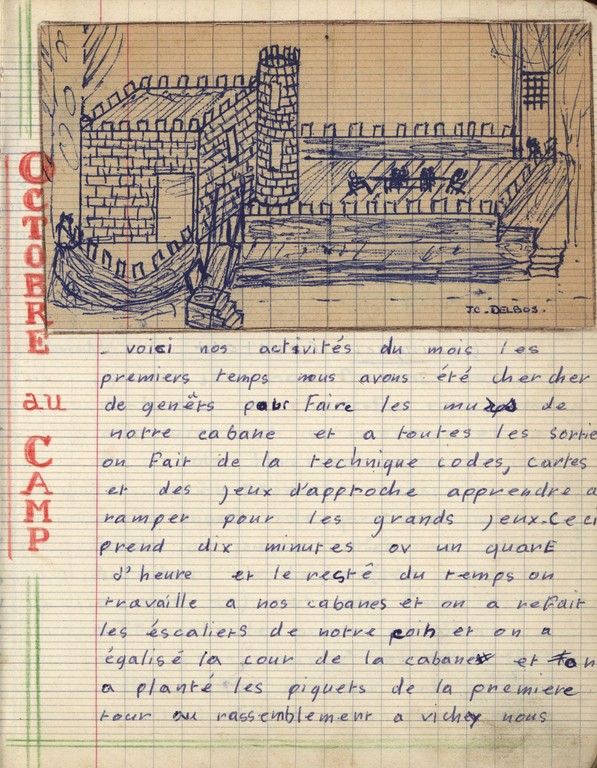 JC. DELBOS.
OCTOBRE au CAMP
- voici nos activités du mois les
premiers temps nous avons été chercher
de genêts pour Faire les murs de
notre cabane et a toutes les sortie
on Fait de la technique codes, cartes
et des jeux d'approche apprendre a
ramper pour les grands jeux. Ceci
prend dix minutes ou un quart
d'heure et le restê du temps on
travaille a nos cabanes et on a reFait
les éscaliers de notre coin et on a
égalisé la cour de la cabane et on
a planté les piquets de la premiere
tour au rassemblement a vichy nous